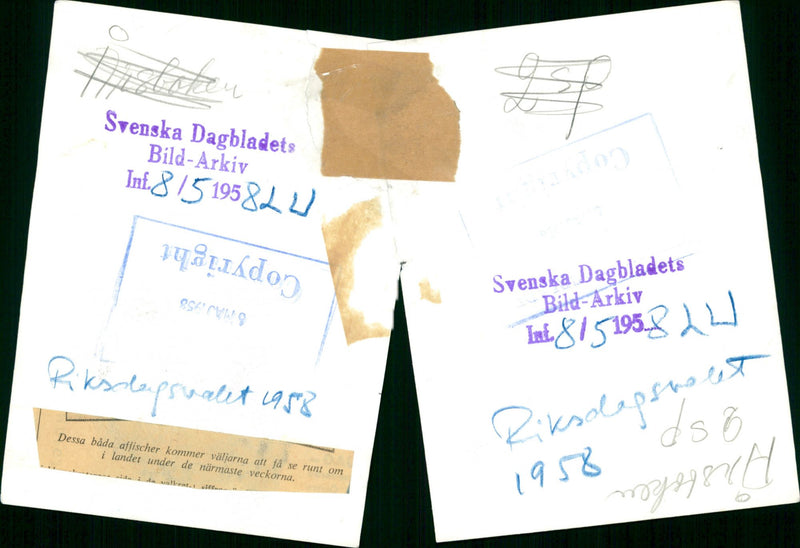 Årsboken
Svenska Dagbladets
Bild-Arkiv
Inf. 8/5 1958 LW
Copyright
8 MAJ 1958
Riksdagsvalet 1958
Dessa båda affischer kommer väljarna att få se runt om
i landet under de närmaste veckorna.
2 sp
Copyright
Svenska Dagbladets
Bild-Arkiv
Inf. 8/5 1958 LW
Riksdagsvalet
1958
2 sp
Årsboken